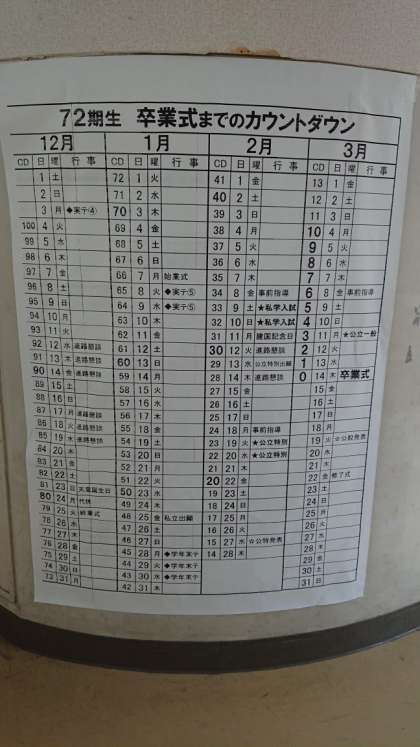 72期生 卒業式までのカウントダウン
12月 1月 2月 3月
CD 日 曜 行事 CD 日 曜 行事 CD 日 曜 行事 CD 日 曜 行事
1 土 72 1 火 41 1 金 13 1 金
2 日 71 2 水 40 2 土 12 2 土
3 月 ◆実テ④ 70 3 木 39 3 日 11 3 日
100 4 火 69 4 金 38 4 月 10 4 月
99 5 水 68 5 土 37 5 火 9 5 火
98 6 木 67 6 日 36 6 水 8 6 水
97 7 金 66 7 月 始業式 35 7 木 7 7 木
96 8 土 65 8 火 ◆実テ⑤ 34 8 金 事前指導 6 8 金 事前指導
95 9 日 64 9 水 ◆実テ⑤ 33 9 土 ★私学入試 5 9 土
94 10 月 63 10 木 32 10 日 ★私学入試 4 10 日
93 11 火 62 11 金 31 11 月 建国記念日 3 11 月 ★公立一般
92 12 水 進路懇談 61 12 土 30 12 火 進路懇談 2 12 火
91 13 木 進路懇談 60 13 日 29 13 水 公立特別出願 1 13 水
90 14 金 進路懇談 59 14 月 28 14 木 進路懇談 0 14 木 卒業式
89 15 土 58 15 火 27 15 金 15 金
88 16 日 57 16 水 26 16 土 16 土
87 17 月 進路懇談 56 17 木 25 17 日 17 日
86 18 火 進路懇談 55 18 金 24 18 月 事前指導 18 月
85 19 水 進路懇談 54 19 土 23 19 火 ★公立特別 19 火 ☆公般発表
84 20 木 53 20 日 22 20 水 ★公立特別 20 水
83 21 金 52 21 月 21 21 木 21 木
82 22 土 51 22 火 20 22 金 22 金 修了式
81 23 日 天皇誕生日 50 23 水 19 23 土 23 土
80 24 月 代休 49 24 木 18 24 日 24 日
79 25 火 終業式 48 25 金 私立出願 17 25 月 25 月
78 26 水 47 26 土 16 26 火 26 火
77 27 木 46 27 日 15 27 水 ☆公特発表 27 水
76 28 金 45 28 月 ◆学年末テ 14 28 木 28 木
75 29 土 44 29 火 ◆学年末テ 29 金
74 30 日 43 30 水 ◆学年末テ 30 土
73 31 月 42 31 木 31 日